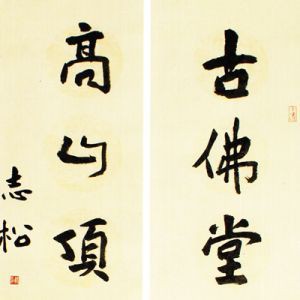 古佛堂
高山頂
志松